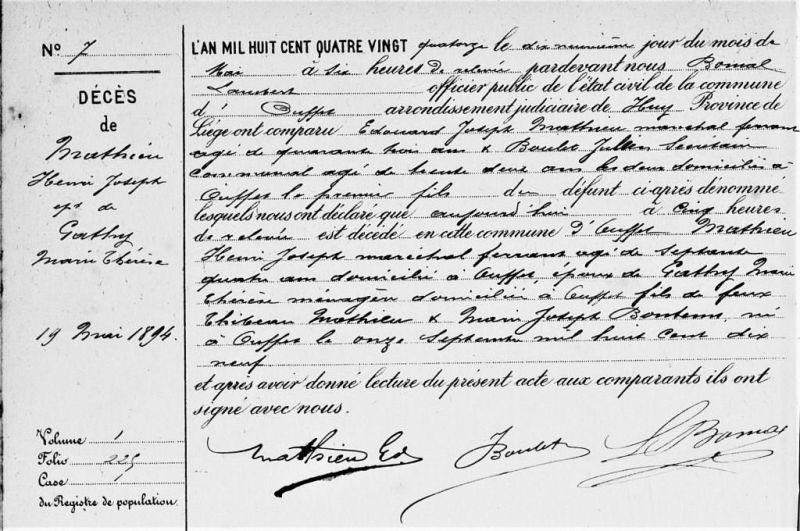 No 7
DÉCÈS
de
Mathieu
Henri Joseph
ép. de
Gathy
Marie Thérèse
19 Mai 1894.
Volume 1
Folio 225
Case
du Registre de population.
L'AN MIL HUIT CENT QUATRE VINGT quatorze le dix neuvième jour du mois de
Mai à six heures de relevée pardevant nous Bomal
Lambert officier public de l'état civil de la commune
d' Ouffet arrondissement judiciaire de Huy Province de
Liége ont comparu Edouard Joseph Mathieu maréchal ferrant
agé de quarante trois ans & Boulet Julien Secrétaire
Communal agé de trente deux ans les deux domiciliés à
Ouffet le premier fils du défunt ci-après dénommé
lesquels nous ont déclaré que aujourd'hui à cinq heures
de relevée est décédé en cette commune d'Ouffet Mathieu
Henri Joseph maréchal ferrant agé de septante
quatre ans domicilié à Ouffet, époux de Gathy Marie
Thérèse ménagère domiciliée à Ouffet fils de feux
Thibeau Mathieu & Marie Joseph Bontems, né
à Ouffet le onze Septembre mil huit cent dix
neuf
et après avoir donné lecture du présent acte aux comparants ils ont
signé avec nous.
Mathieu Ed. Boulet L Bomal